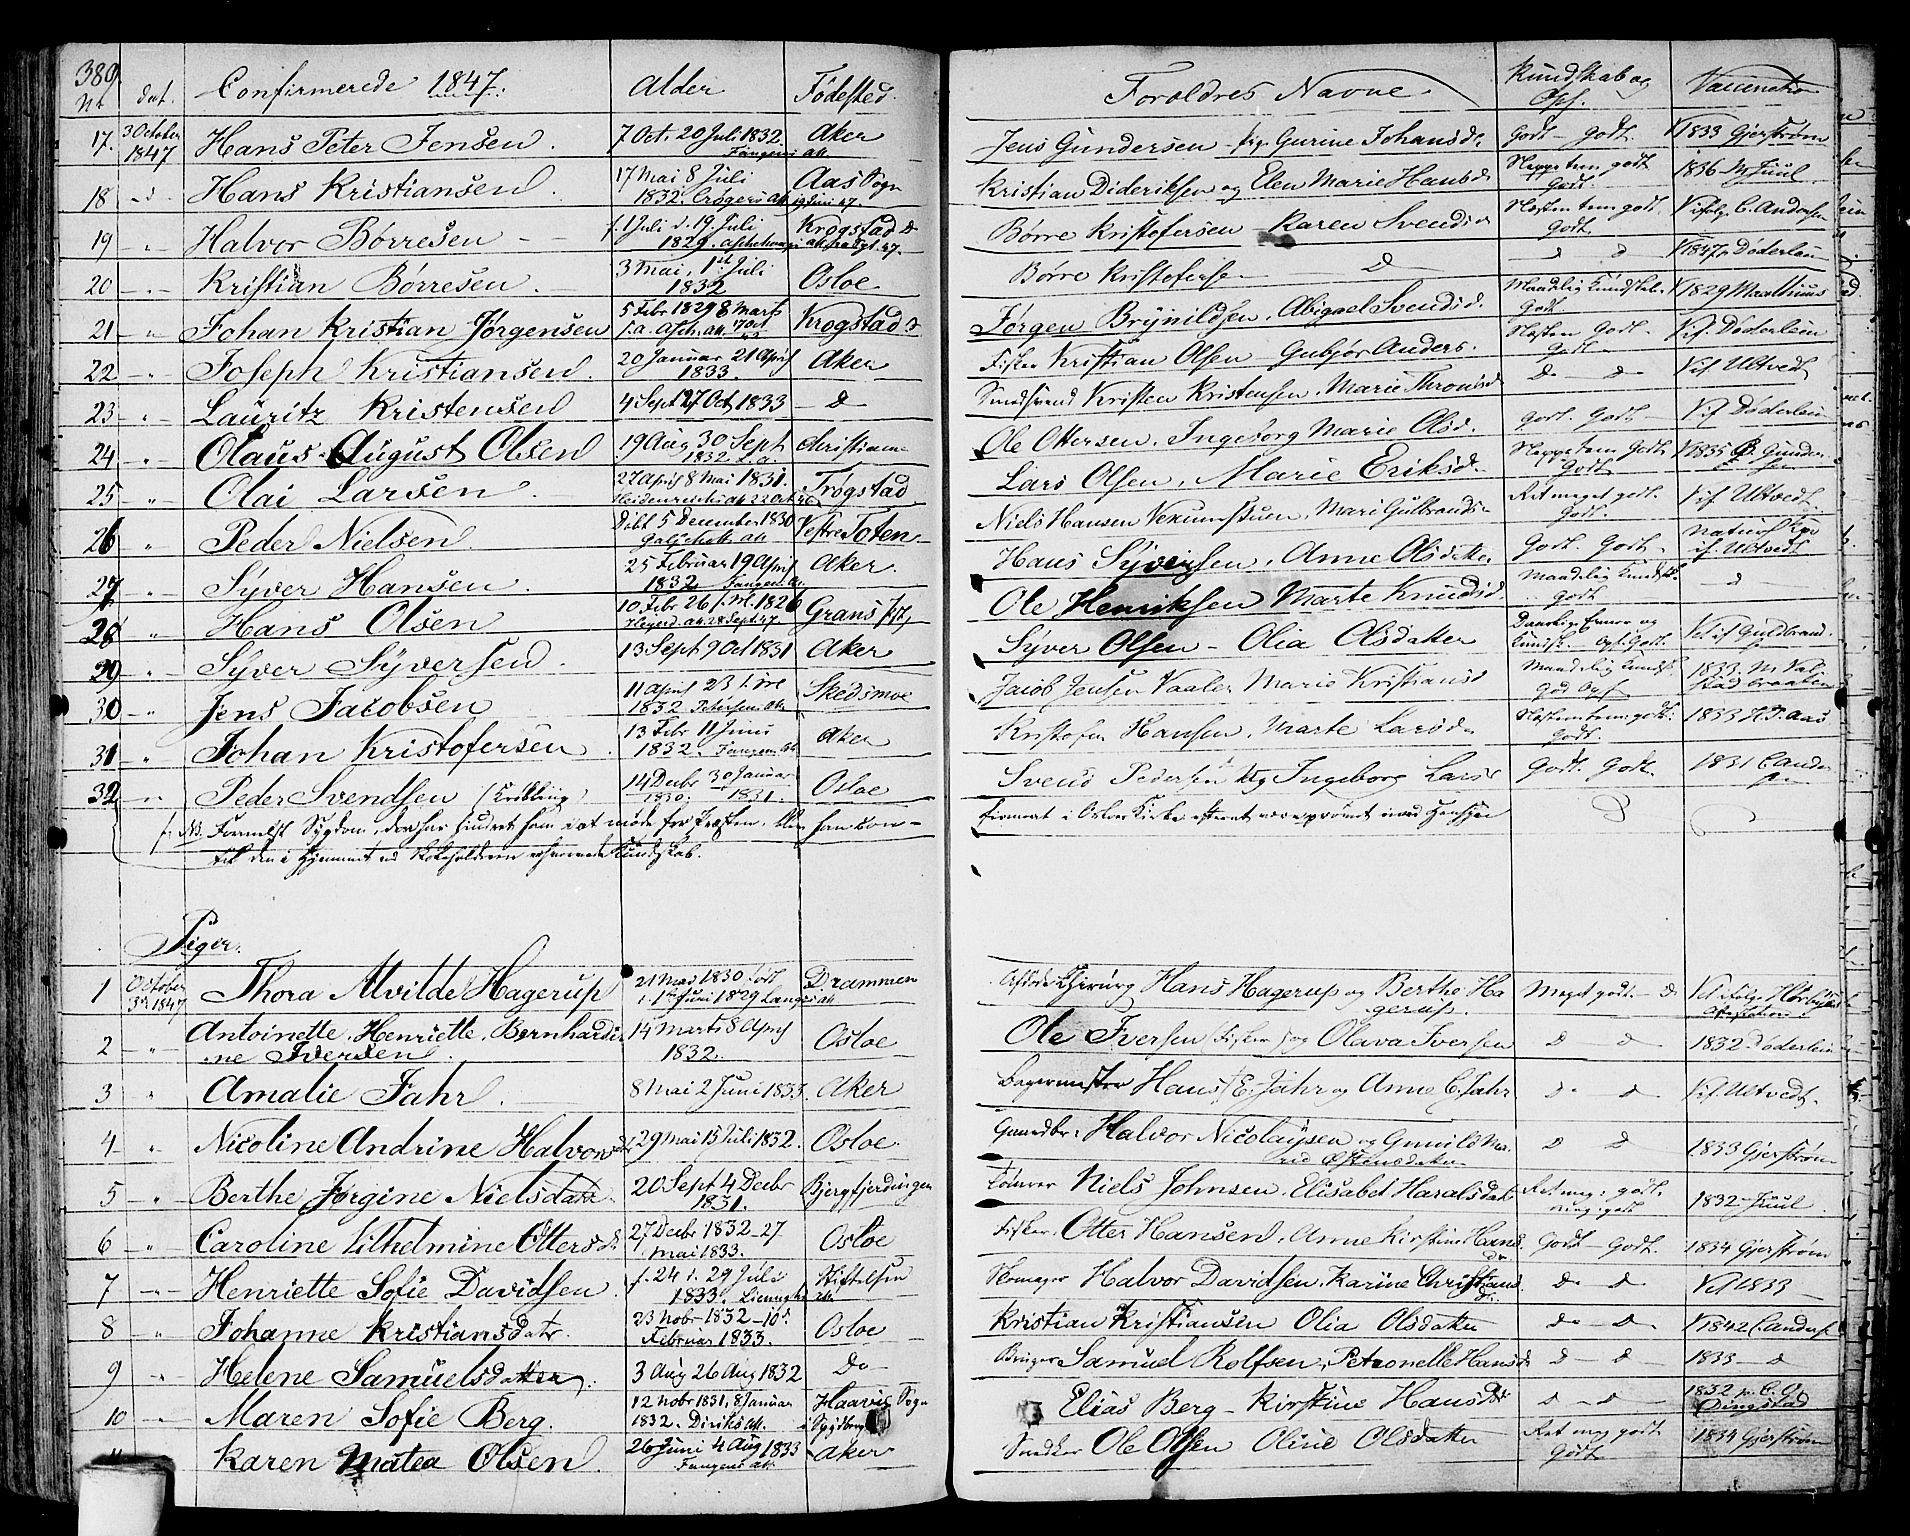 389.
Nt. dat. Confirmerede 1847. Alder Fødested. Foræld­res Navne Kundskab og Opf. Vaccinatio
17. 3 October 1847 Hans Peter Jensen. 7 Oct. 20 Juli 1832. Fangens att. Aker Jens Gundersen Gurine Johansd. Godt - godt. V 1833 Gjerstrøm
18 Hans Kristiansen. 17 Mai 8 Juli 1832. Aas Sogn Kristian Dideriksen og Elen Marie Hansd. godt Godt. 1836 M Juul
19 Halvor Børresen f. 1 Juli d. 19 Juli 1829. Krogstad Børre Kristofersen Karen Svendsd Næsten tem godt. Godt. C. Andersen
20 Kristian Børresen. 3 Mai, 1st Juli 1832 Osloe Børre Kristoferse D D D V 1847 Døderlein
21 Johan Kristian Jørgensen 5 Febr 1829 8 Marts Krogstad Jørgen Brynildsen. Abigael Svendsd. Maadelig Kundskab. Godt. V 1829 Maalthuus
22 Joseph Kristiansen. 20 Januar 21 April 1833. Aker Fisker Kristian Olsen Gubjør Anders. Næsten Godt. Godt. V. if. Døderlein
23 Lauritz Kristensen 4 Sept 27 Oct 1833 D Kristen Kristensen. Marie Thronsd D D V if Ultvedt
24 Olaus August Olsen 19 Aug 30 Sept 1832 Christiania Ole Ottersen. Ingeborg Marie Olsd. godt. Godt. V if Døderlein
25 Olai Larsen 27 April 8 Mai 1831. Trøgstad Lars Olsen, Marie Eriksd. Godt Godt V 1835
26 Peder Nielsen. Døbt 5 December 1830 Vestre Toten Niels Hansen Marie Gulbrandsd Ret meget godt. Godt. V if. Ultvedt
27 Syver Hansen 25 Februar 19 April 1832 Fangens att. Aker. Hans Syversen. Anne Olsdatter Godt. Godt. if. Ultvedt
28 Hans Olsen 10 Febr 26 1826 28 Sept 47 Grans Ole Henriksen Marte Knudsd. Maadelig Kundsk. godt D
29 Syver Syversen. 13 Sept 9 Oct 1831 Aker Syver Olsen - Olia Olsdatter Kundsk. Opf. Godt. Guldbrand
30 Jens Jacobsen 11 April 23 1832 Petersen att. Skedsmoe Jacob Jensen Vaaler Marie Kristiansd Maadelig Kundsk. God Opf 1833. M
31 Johan Kristofersen 13 Febr 11 Juni 1832. Fangens Att. Aker Kristofer Hansen. Marte Larsd. godt. Godt. 1833 H. P. Aas
32 Peder Svendsen (Krøbling) 14 Decbr 1830. 30 Januar 1831. Osloe Svend Pedersen og Ingeborg Larsd Godt. Godt. 1831 C. Ander
NB. Formedelst Sygdom, der har hindret ham i at møde for Præsten. Blev han con-
firmeret i Osloe Kirke efterat være prøvet med Hensyn
til den i Hjemmet ved Skoleholderen erhvervede Kundskab.
Piger.
1 October 3die 1847 Thora Alvilde Hagerup 21 Mai 1830 født 1 Juni 1829 Drammen Afdøde Chirurg Hans Hagerup og Berthe Hagerup. Meget godt. D
2 Antoinette Henriette Bernhardine Iversen. 14 Marts 8 April 1832. Osloe Ole Iversen Fisker og Olava Iversen D D 1832 Døderlein
3 Amalie Jahr. 8 Mai 2 Juni 1833 Aker Bagermester Hans E. Jahr og Anne C. Jahr D D V if. Ultvedt.
4 Nicoline Andrine Halvorsdt 29 Mai 15 Juli 1832. Osloe. Halvor Nicolaysen og Gunild Marie Østensdatter D D 1833 Gjerstrøm
5 Berthe Jørgine Nielsdatr. 20 Sept 4 Decbr 1831. Bjergfjerdingen Tømrer Niels Johnsen. Elisabet Haralsdat Ret meg: godt. 1832 Juul
6 Caroline Vilhelmine Ottersd. 27 Decbr 1832 - 27 Mai 1833. Osloe Fisker. Otter Hansen. Anne Kirstine Hansdr. Godt - Godt. 1834 Gjerstrøm
7 Henriette Sofie Davidsen. f. 24 29 Juli 1833. Stiftelsen Skomager Halvor Davidsen. Karine Christiansdr. D D V 1833
8 Johanne Kristiansdatr. 23 Nobr 1832 - 10d Februar 1833. Osloe Kristian Kristiansen Olia Olsdatter D D V 1842 C. Anders
9 Helene Samuelsdatter. 3 Aug 26 Aug 1832 Do Samuel Rolfsen. Petronelle Hansd D D 1833 - D
10 Maren Sofie Berg. 12 Nobr 1831, 8 Januar 1832. Haavis Sogn i Elias Berg - Kirstine Hansdt D D 1832 Ringstad
11 Karen Matea Olsen. 26 Juni 4 Aug 1833 Fangens att. Aker Snedker Ole Olsen Oline Olsdatter Ret meg godt Godt 1834 Gjerstrøm